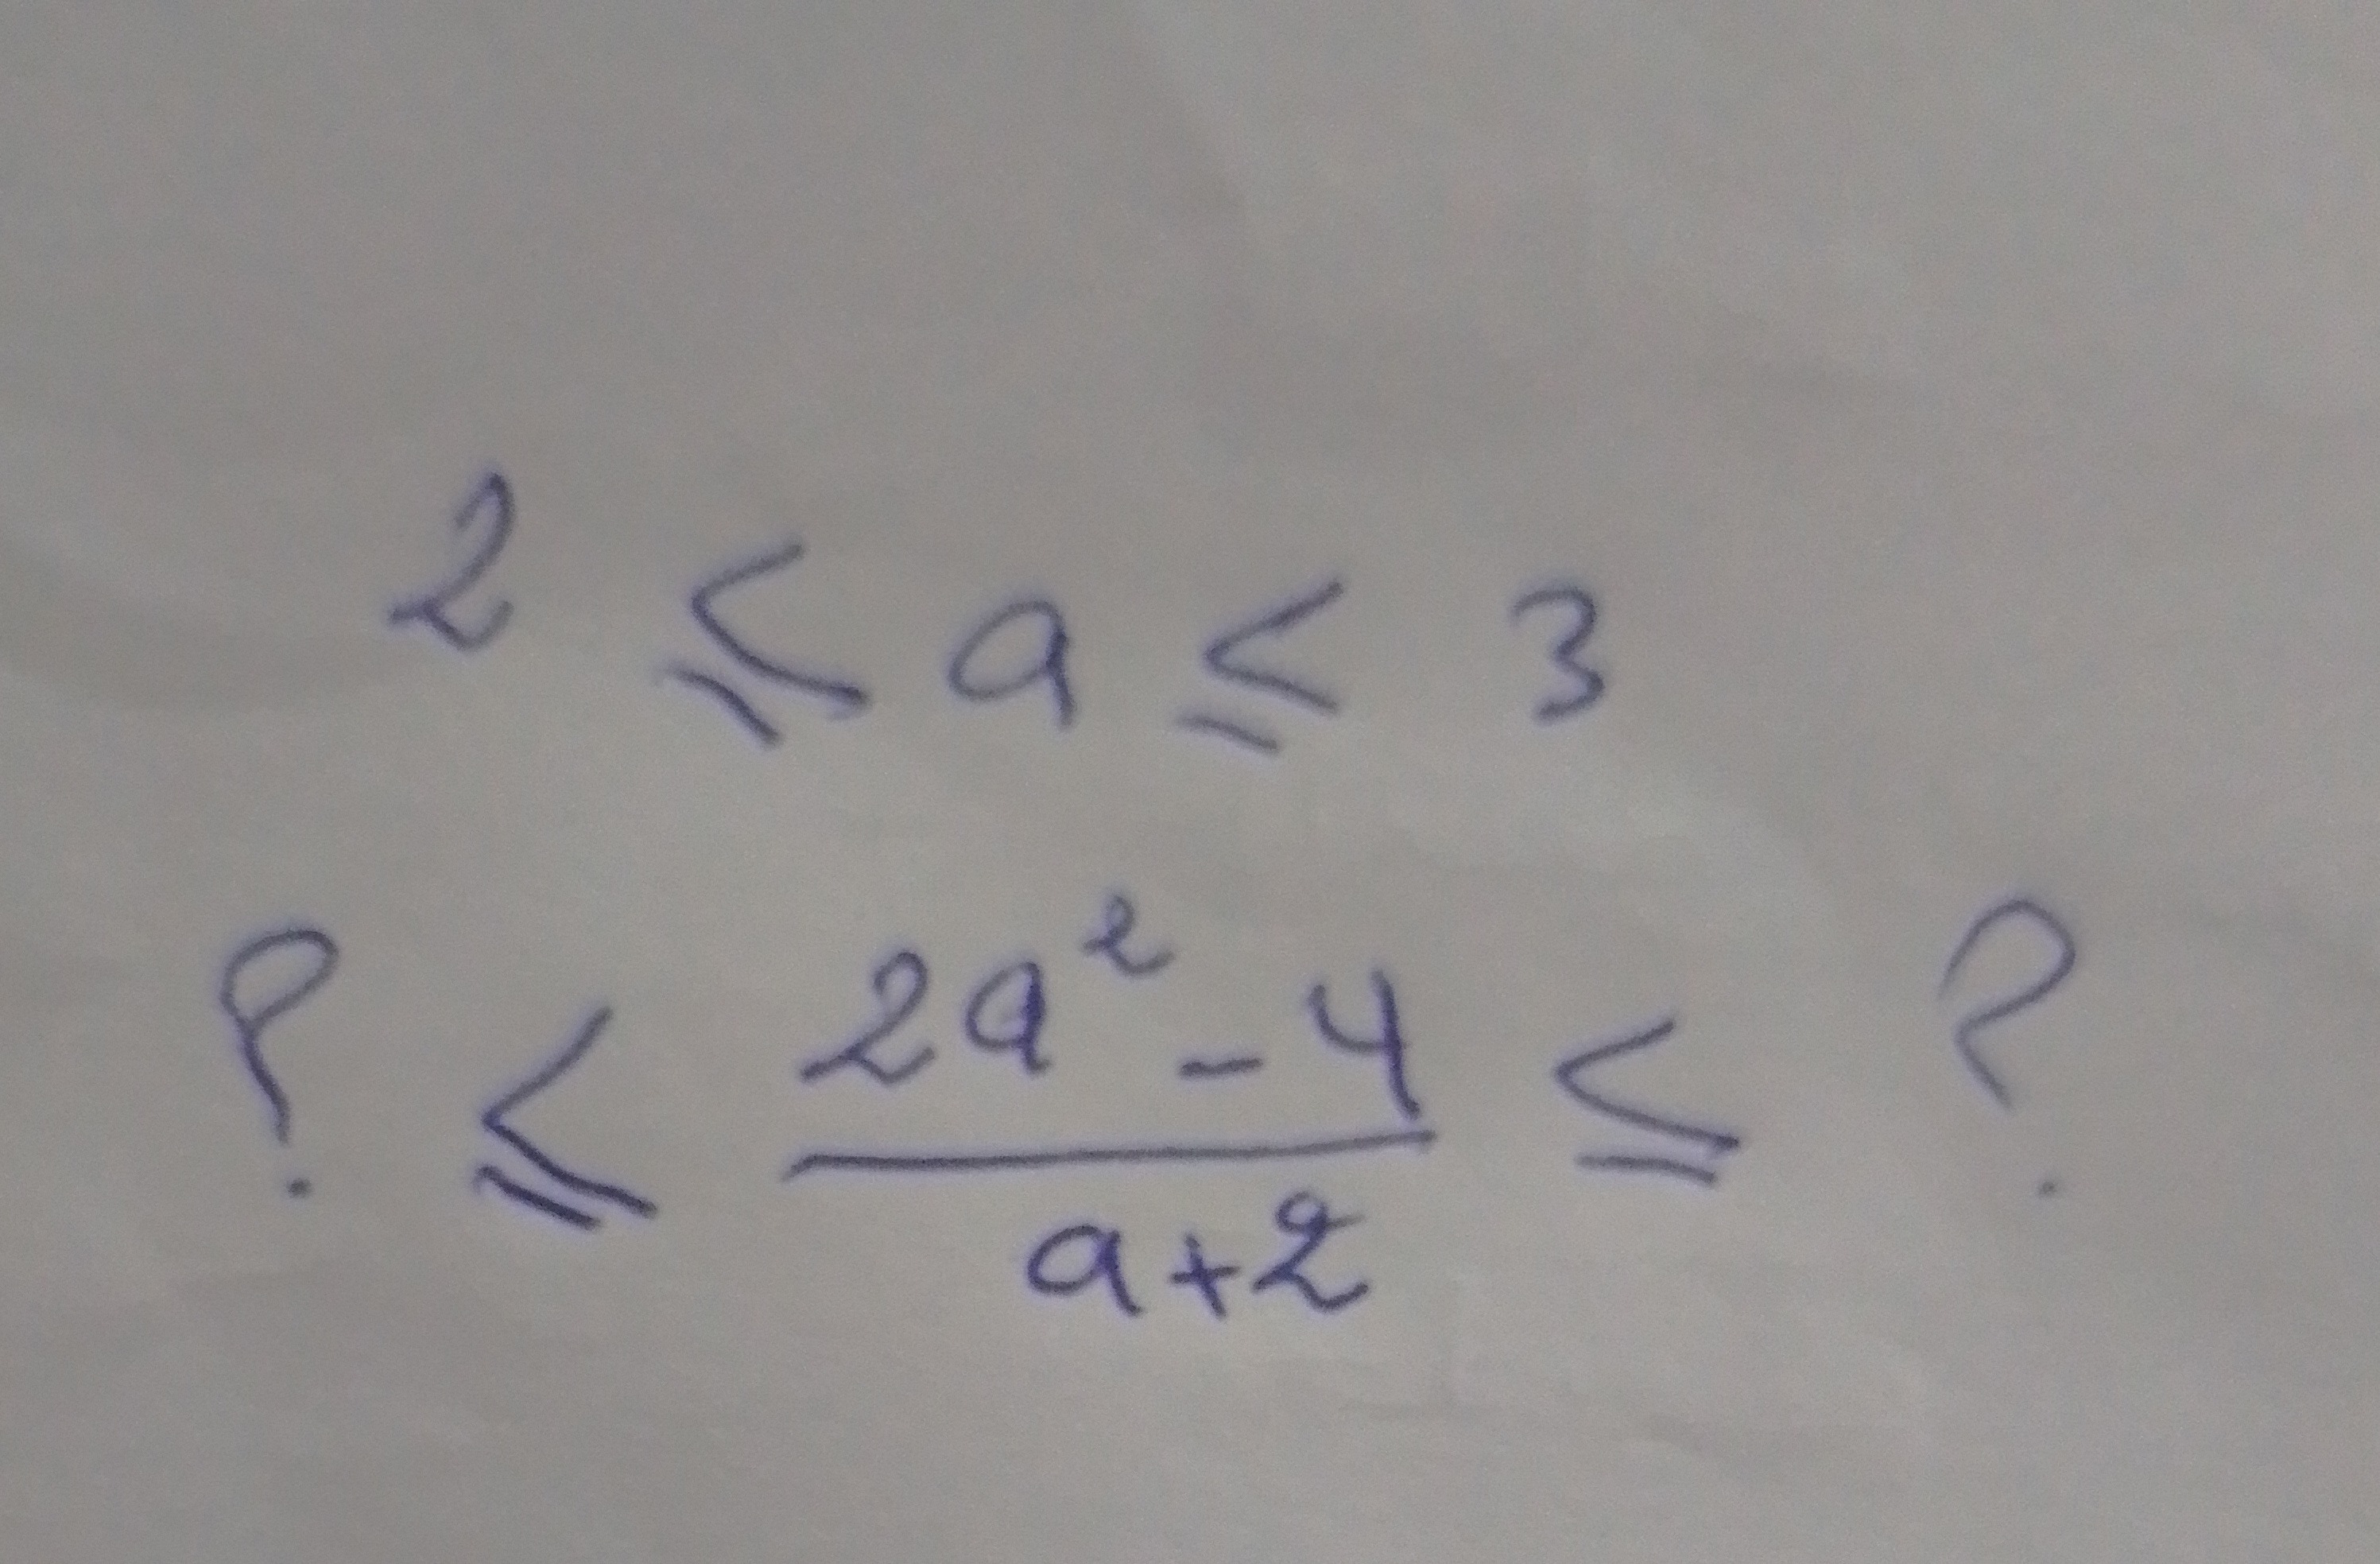 2 ≤ a ≤ 3
? ≤ (2a² - 4)/(a+2) ≤ ?